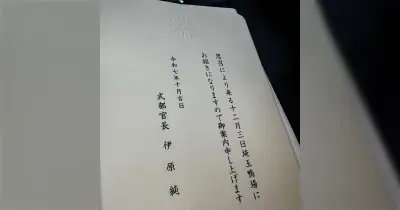 思召により来る十二月三日埼玉鴨場に
お招きになりますので御案内申し上げます
令和七年十月吉日
式部官長 伊原純